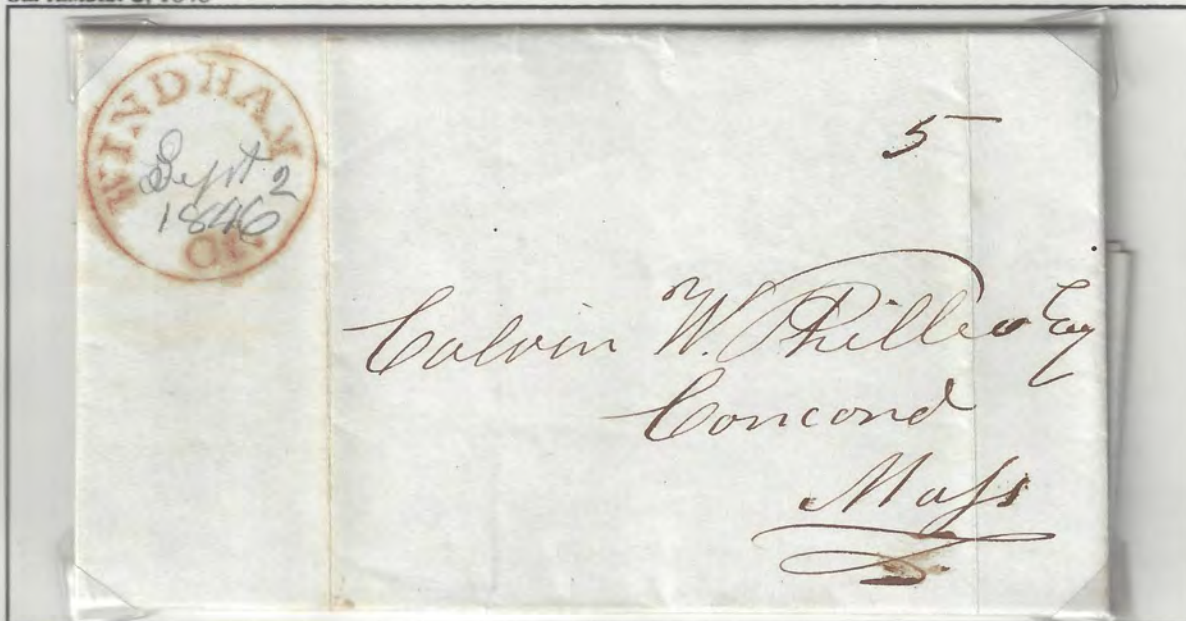 WINDHAM
Sept 2
1846
5
Calvin W. Philleo Esq
Concord
Maſs